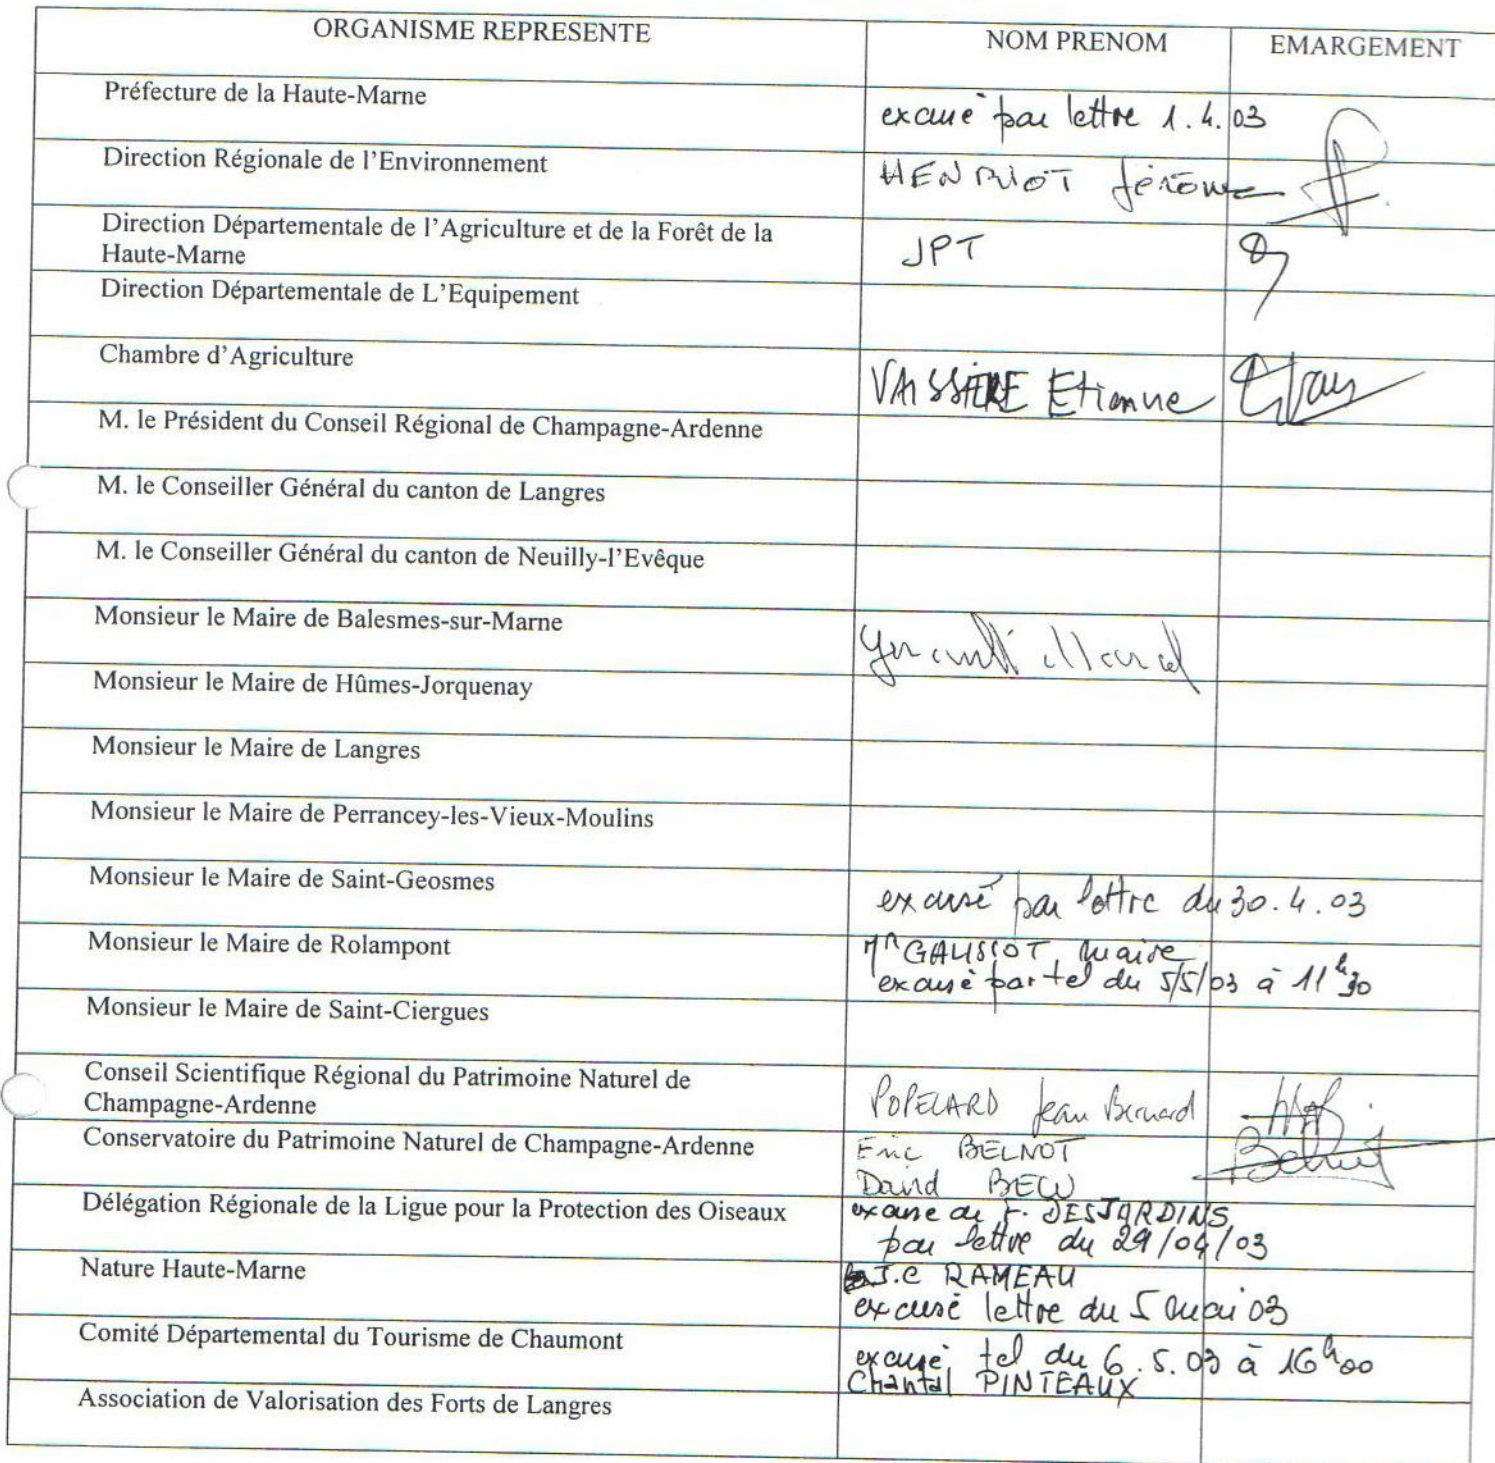 ORGANISME REPRESENTE NOM PRENOM EMARGEMENT
Préfecture de la Haute-Marne
excusé par lettre 1.4.03
Direction Régionale de l'Environnement
HENRIOT Jérôme
Direction Départementale de l'Agriculture et de la Forêt de la
Haute-Marne
JPT
Direction Départementale de L'Equipement
Chambre d'Agriculture
VAISSIERE Etienne
M. le Président du Conseil Régional de Champagne-Ardenne
M. le Conseiller Général du canton de Langres
M. le Conseiller Général du canton de Neuilly-l'Evêque
Monsieur le Maire de Balesmes-sur-Marne
Marcel
Monsieur le Maire de Hûmes-Jorquenay
Monsieur le Maire de Langres
Monsieur le Maire de Perrancey-les-Vieux-Moulins
Monsieur le Maire de Saint-Geosmes
excusé par lettre du 30.4.03
Monsieur le Maire de Rolampont
Mr GAUSSOT, maire
excusé par tel du 5/5/03 à 11h30
Monsieur le Maire de Saint-Ciergues
Conseil Scientifique Régional du Patrimoine Naturel de
Champagne-Ardenne
POPELARD Jean Bernard
Conservatoire du Patrimoine Naturel de Champagne-Ardenne
Eric BELNOT
David BECU
Délégation Régionale de la Ligue pour la Protection des Oiseaux
excuse de F. DESJARDINS
par lettre du 29/04/03
Nature Haute-Marne
J.C RAMEAU
excusé lettre du 5 mai 03
Comité Départemental du Tourisme de Chaumont
excusé tel du 6.5.03 à 16h00
Chantal PINTEAUX
Association de Valorisation des Forts de Langres